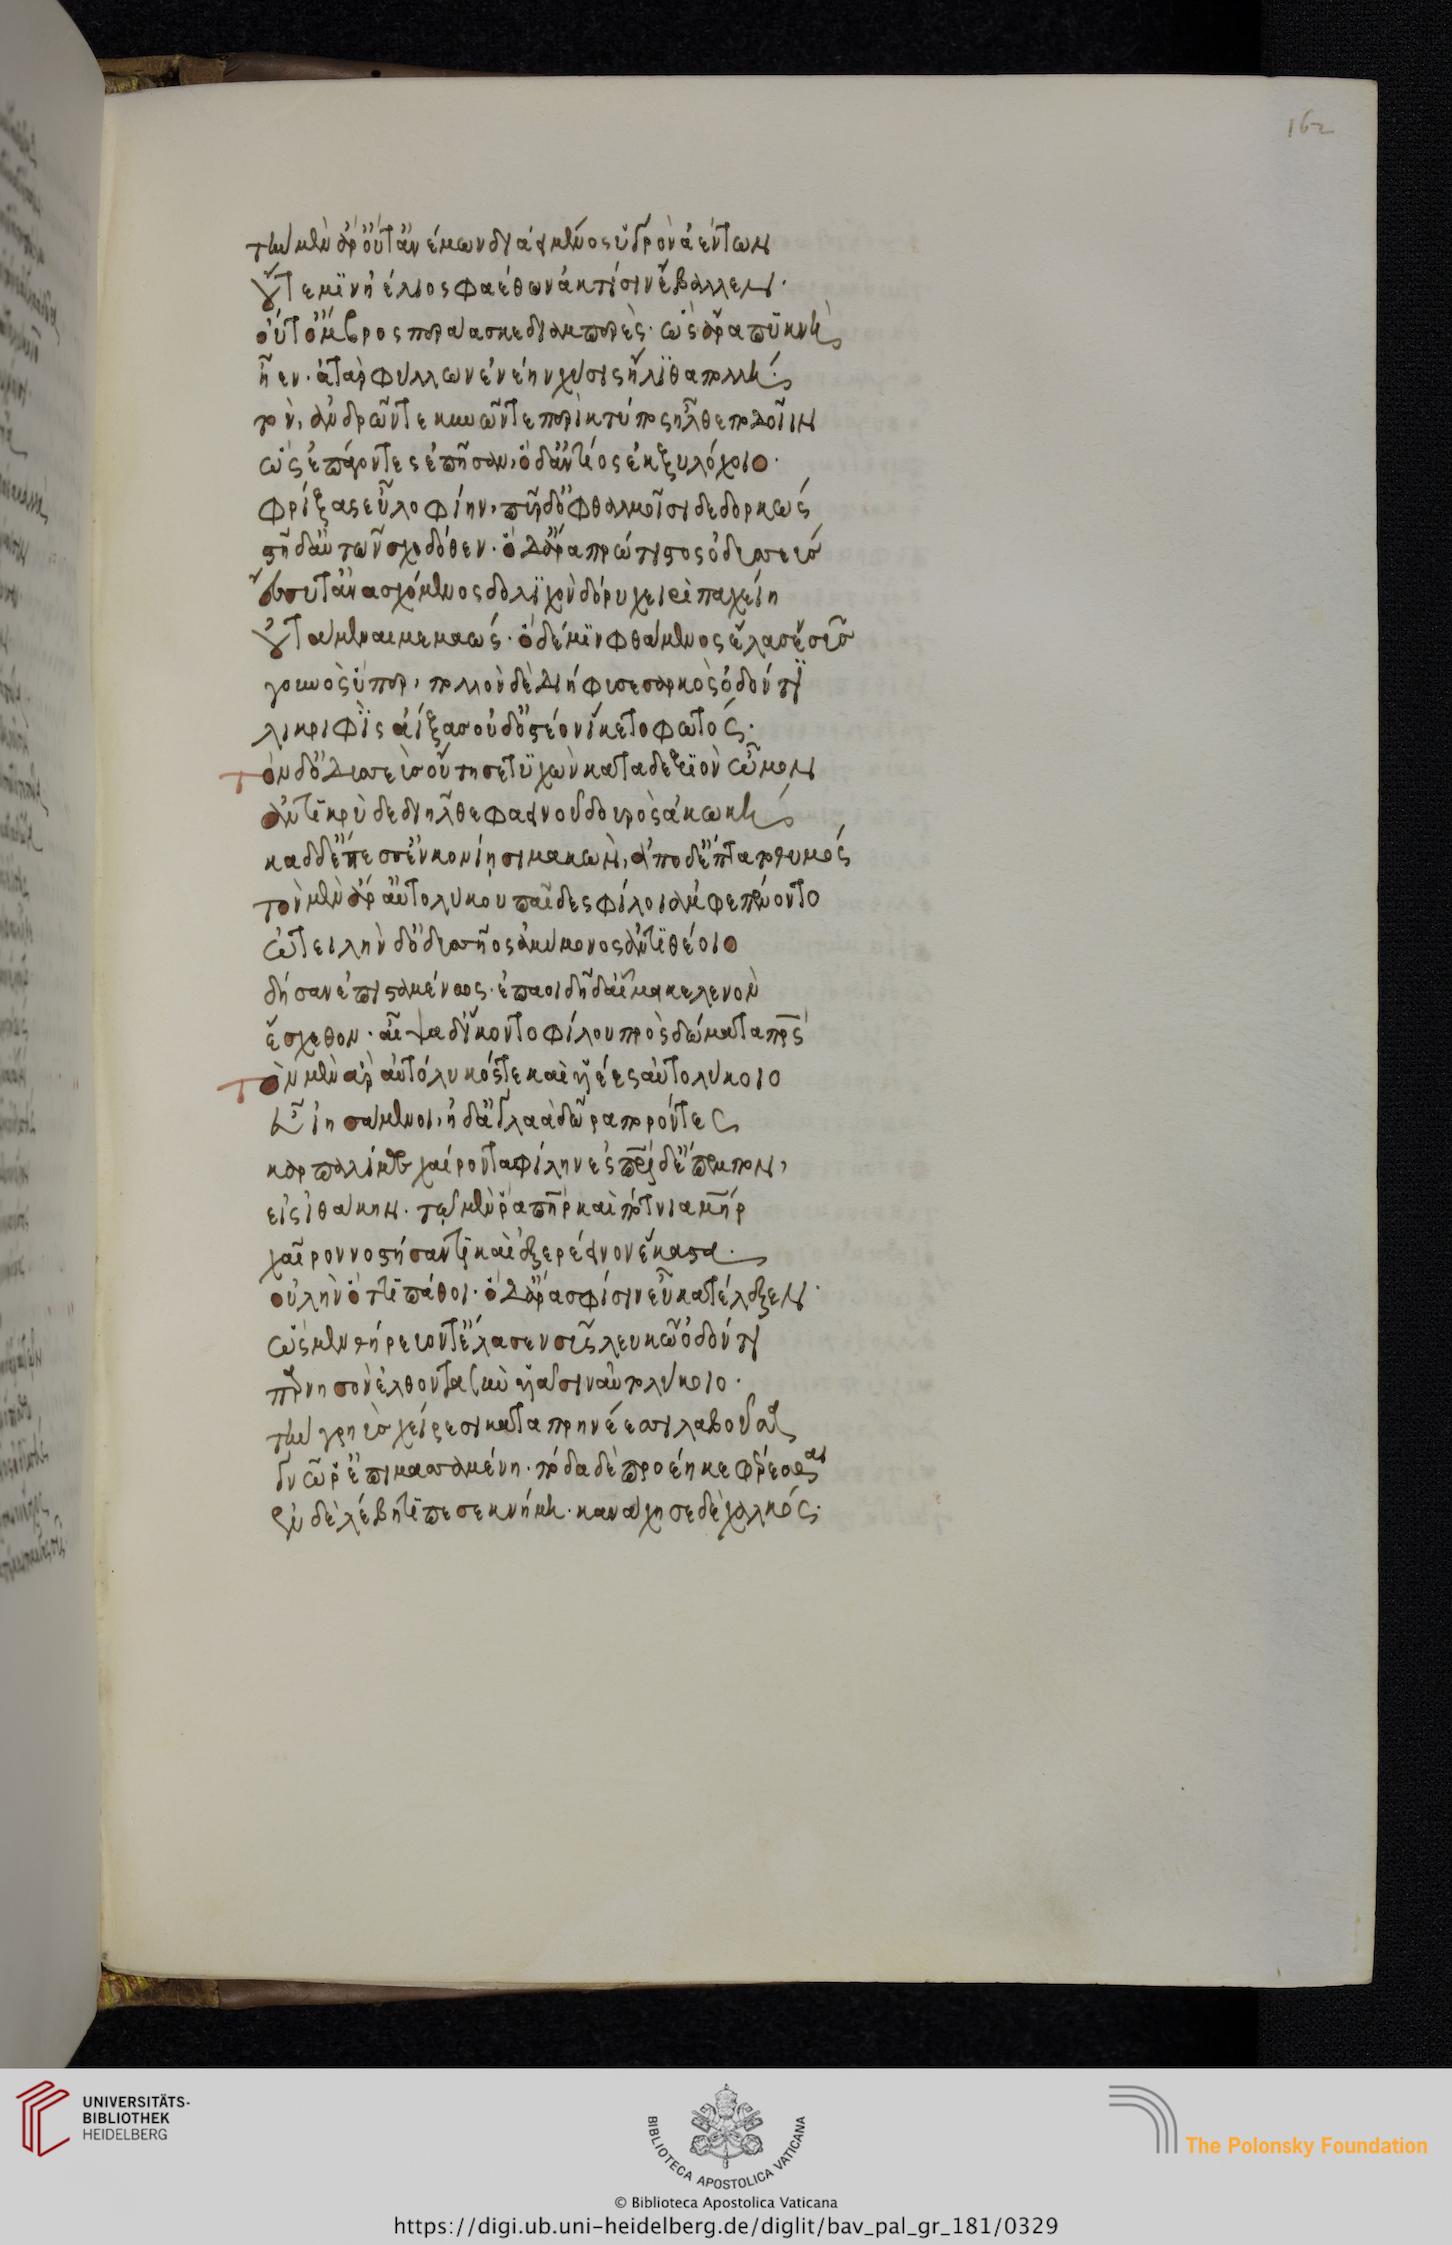 162
τὴν μὲν ἄρ οὔτ ἀνέμων διάει μένος ὑγρὸν ἀέντων
οὔτέ μιν ἠέλιος φαέθων ἀκτῖσιν ἔβαλλεν·
οὔτ ὄμβρος περάασκε διαμπερές· ὣς ἄρα πυκνὴ
ἦεν· ἀτὰρ φύλλων ἐνέην χύσις ἤλιθα πολλή·
τὸν, ἀνδρῶν τε κυνῶν τε περὶ κτύπος ἦλθε ποδοῖιν
ὡς ἐπάγοντες ἐπῆσαν, ὁ δ ἀντίος ἐκ ξυλόχοιο·
φρίξας εὖ λοφίην, πῦρ δ ὀφθαλμοῖσι δεδορκώς
στῆ δ αὐτῶν σχεδόθεν· ὁ δ ἄρα πρώτιστος ὀδυσσεὺς
ἔσσυτ ἀνασχόμενος δολιχὸν δόρυ χειρὶ παχείῃ
οὐτάμεναι μεμαώς· ὁ δέ μιν φθάμενος ἔλασεν σῦς
γουνὸς ὕπερ, πολλὸν δὲ διήφυσε σαρκὸς ὀδόντι
λικριφὶς ἀίξας οὐδ ὀστέον ἵκετο φωτός·
τὸν δ ὀδυσεὺς οὔτησε τυχὼν κατὰ δεξιὸν ὦμον
ἀντικρὺ δὲ διῆλθε φαεινοῦ δουρὸς ἀκωκή
καδδ ἔπεσ ἐν κονίῃσι μακών, ἀπὸ δ ἔπτατο θυμός
τὸν μὲν ἄρ αὐτολύκου παῖδες φίλοι ἀμφεπένοντο
ὠτειλὴν δ ὀδυσῆος ἀμύμονος ἀντιθέοιο
δῆσαν ἐπισταμένως· ἐπαοιδῇ δ αἷμα κελαινὸν
ἔσχεθον· αἶψα δ ἵκοντο φίλου πρὸς δώματα πατρός
τὸν μὲν ἄρ αὐτόλυκός τε καὶ υἱέες αὐτολύκοιο
εὖ ἰησάμενοι, ἠδ ἀγλαὰ δῶρα πορόντες
καρπαλίμως χαίροντα φίλην ἐς πατρίδ ἔπεμπον,
εἰς ἰθάκην· τῷ μέν ῥα πατὴρ καὶ πότνια μήτηρ
χαῖρον νοστήσαντι καὶ ἐξερέεινον ἕκαστα·
οὐλὴν ὅττι πάθοι· ὁ δ ἄρα σφίσιν εὖ κατέλεξεν·
ὥς μιν θηρεύοντ ἔλασεν σῦς λευκῷ ὀδόντι
παρνησὸν ἐλθόντα σὺν υἱάσιν αὐτολύκοιο·
τὴν γρηὺς χείρεσι καταπρηνέεσσι λαβοῦσα
γνῶ ῥ ἐπιμασσαμένη· πόδα δὲ προέηκε φέρεσθαι
ἐν δὲ λέβητι πέσε κνήμη· κανάχησε δὲ χαλκός·
UNIVERSITÄTS-
BIBLIOTHEK
HEIDELBERG
BIBLIOTECA APOSTOLICA VATICANA
The Polonsky Foundation
© Biblioteca Apostolica Vaticana
https://digi.ub.uni-heidelberg.de/diglit/bav_pal_gr_181/0329